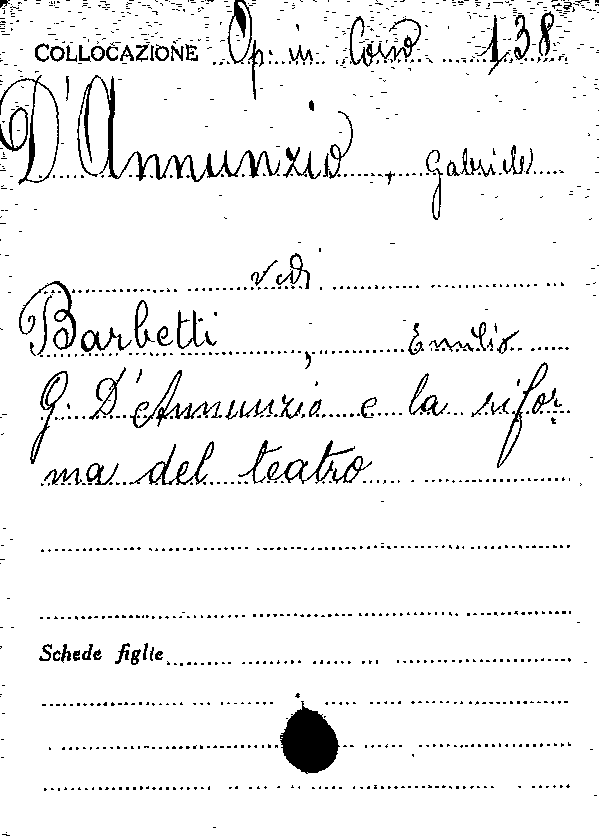 COLLOCAZIONE Op. in Corso 138
D'Annunzio, Gabriele
vedi
Barbetti, Emilio
G. D'Annunzio e la rifor-
ma del teatro
Schede figlie